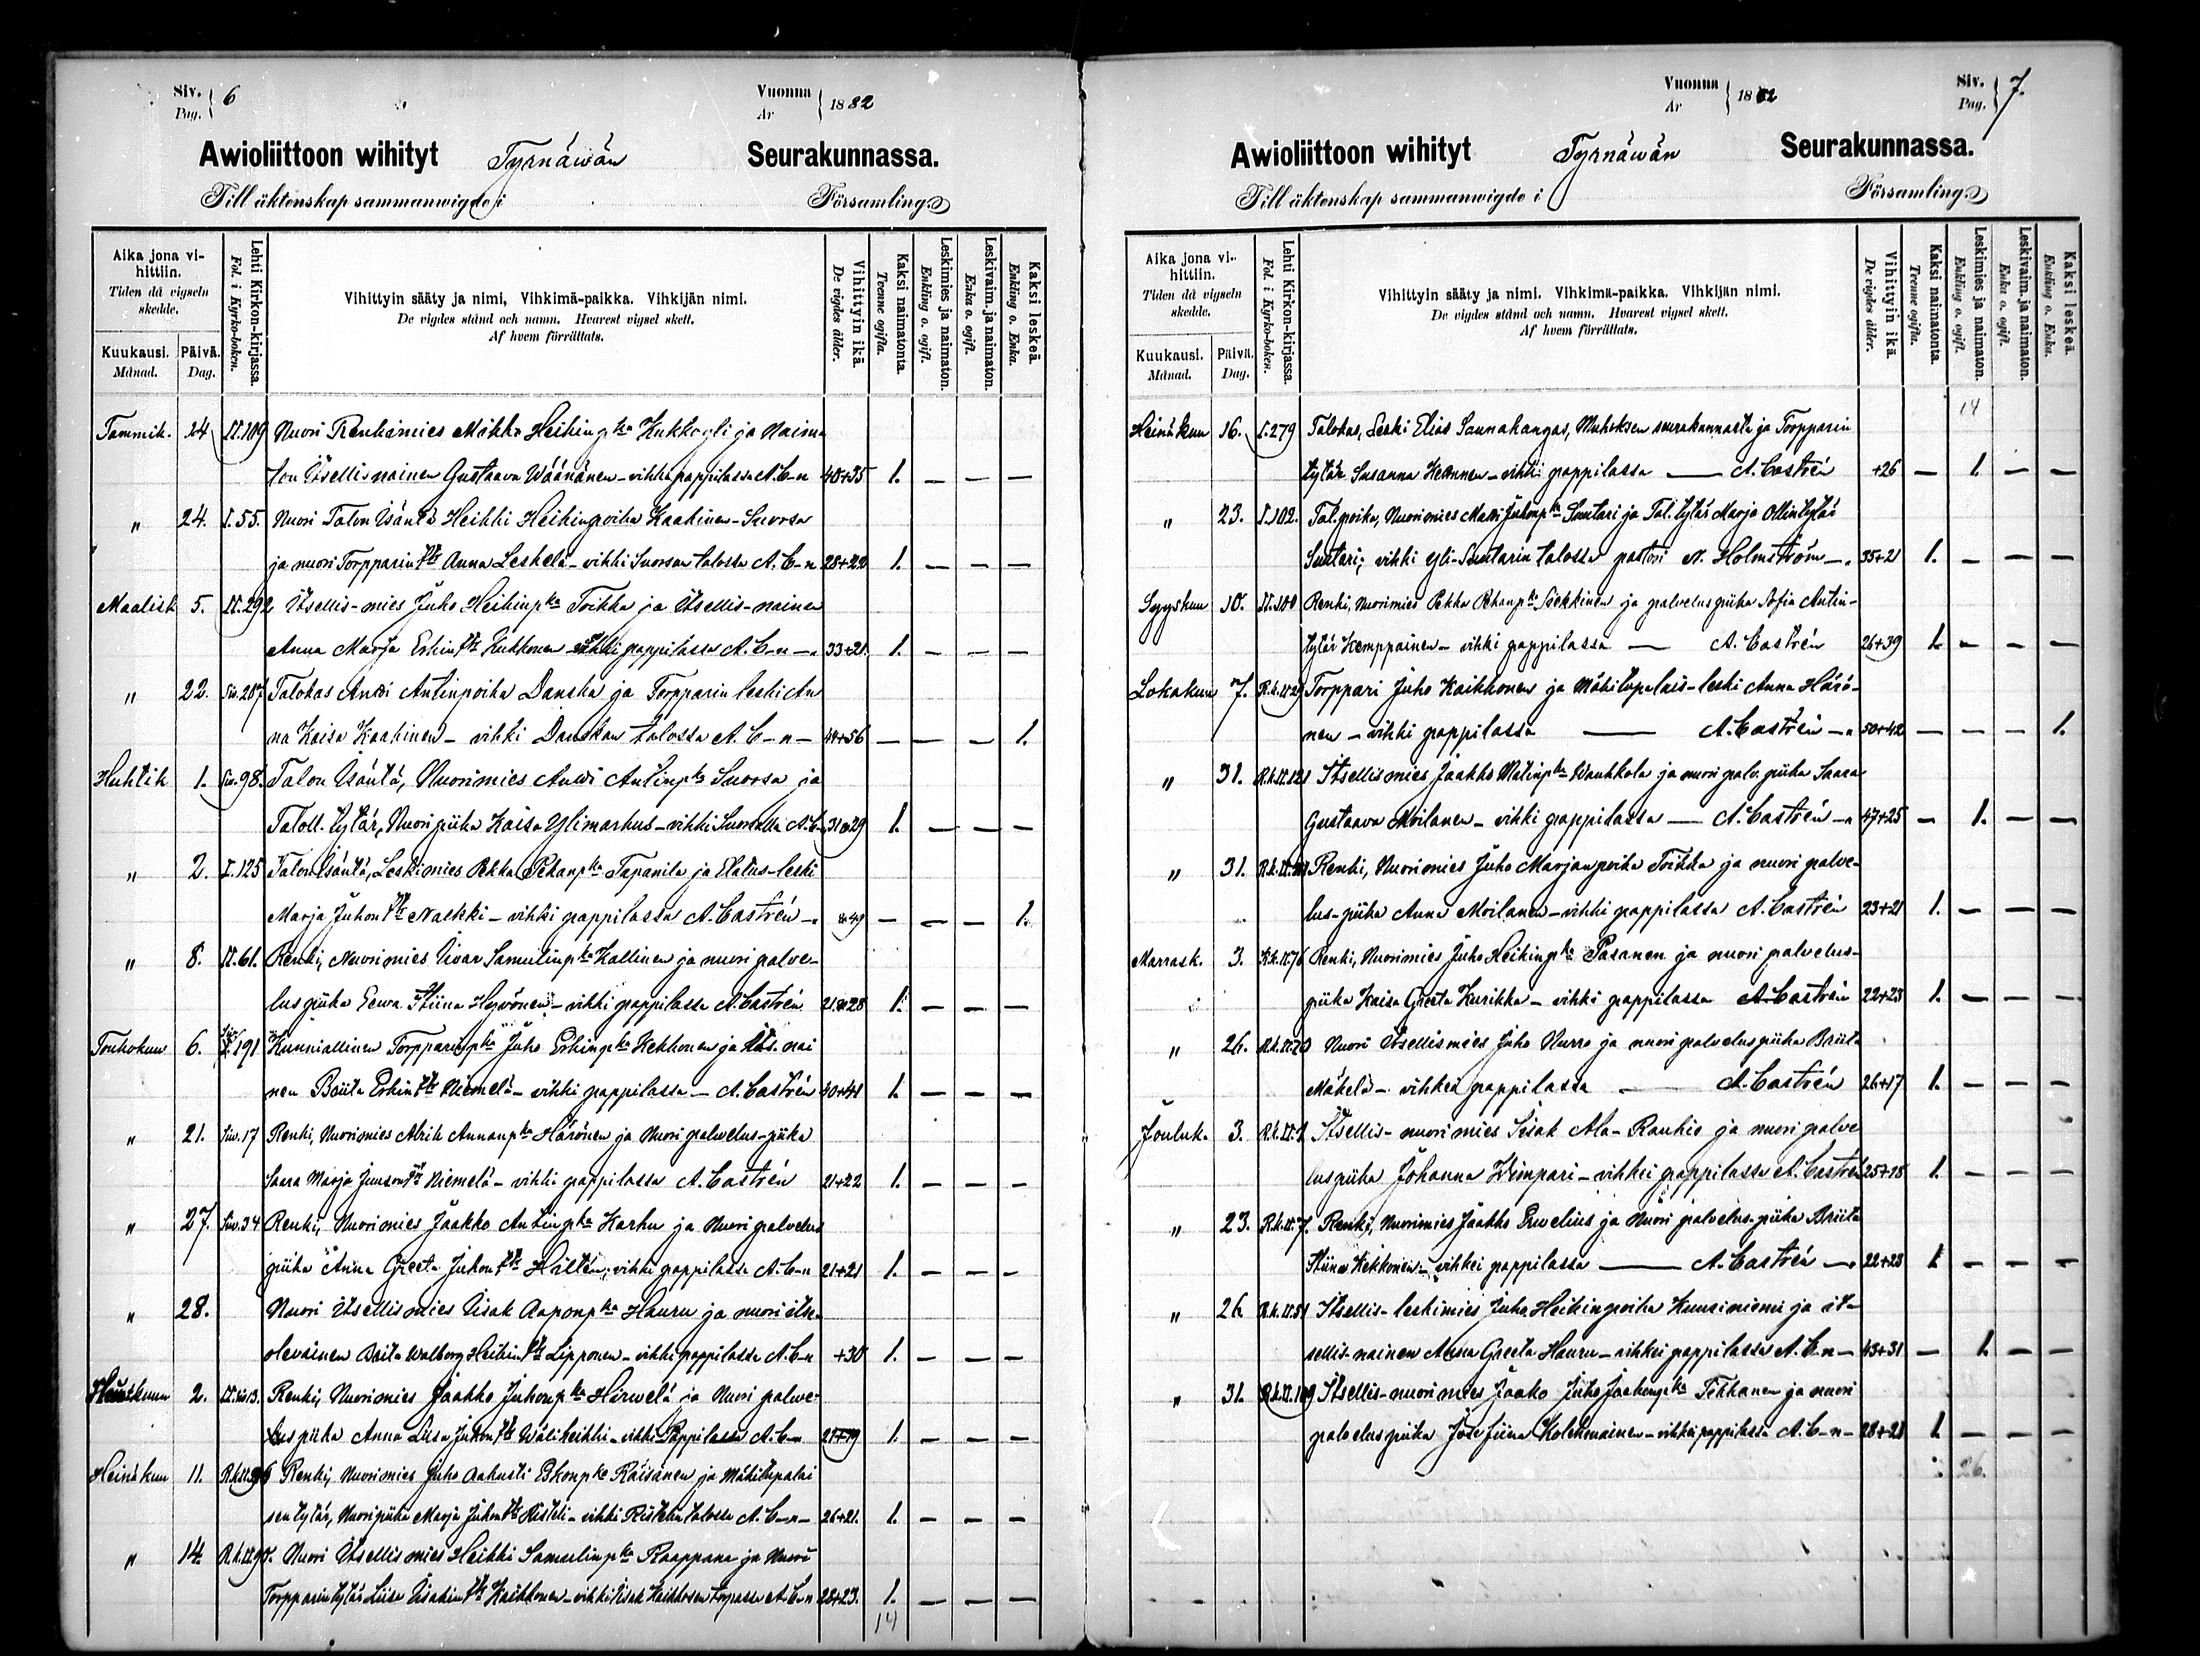 Siv. Pag. 6
Vuonna År 1882
Awioliittoon wihityt Tyrnäwän Seurakunnassa.
Till äktenskap sammanwigde i Församling
Aika jona vihittiin. Tiden då vigseln skedde.
Kuukausi. Månad. Päivä. Dag.
Lehti Kirkon-kirjassa. Fol. i Kyrko-boken.
Vihittyin sääty ja nimi, Vihkimä-paikka. Vihkijän nimi.
De vigdes stånd och namn. Hvarest vigsel skett.
Af hvem förrättats.
Vihittyin ikä. De vigdes ålder.
Kaksi naimatonta. Tvenne ogifta.
Leskimies ja naimaton. Enkling o. ogift.
Leskivaim. ja naimaton. Enka o. ogift.
Kaksi leskeä. Enkling o. Enka.
Tammik. 24 II.109 Nuori Renkimies Mikko Heikinp:ka Kukkoyli ja Naima
ton Itsellisnainen Gustaava Wäänänen - vihki pappilassa A.C-n 40+35 1. — — —
" 24. I.55. Nuori Talon Isäntä Heikki Heikinpoika Kaakinen-Suorsa
ja nuori Torpparin ttr Anna Leskelä - vihki Suorsan talossa A. C-n 28+22 1. — — —
Maalisk 5. II.292 Itsellis-mies Juho Heikinp:ka Toikka ja Itsellis-nainen
Anna Marja Erkin ttr Kukkonen - vihki pappilassa A. C-n - 33+21 1. — — —
" 22. Siv.207 Talokas Antti Antinpoika Danska ja Torpparin leski An
na Kaisa Kaakinen - vihki Danskan talossa A. C-n - 48+56 — — — 1.
Huhtik 1. Siv.98. Talon Isäntä, Nuorimies Antti Antinp:ka Suorsa ja
Taloll. tytär, Nuoripiika Kaisa Ylimarkus - vihki Suorsalla A.C-n 31+29 1. — — —
" 2. I.125 Talon Isäntä, Leskimies Pekka Pekanp:ka Tapanila ja Elatus-leski
Marja Juhon ttr Naekki - vihki pappilassa A. Castrén - +49 — — — 1.
" 8. II.61. Renki, Nuorimies Iivar Samulinp:ka Kallinen ja nuori palve-
lus piika Eewa Stiina Hyvönen - vihki pappilassa A.Castrén 21+28 1. — — —
Toukokuu 6. Siv. I.191 Kunniallinen Torpparinp:ka Juho Erkinp:ka Kekkonen ja Its. nai
nen Briita Erkin ttr Niemelä - vihki pappilassa - A. Castrén 40+41 1. — — —
" 21. Siv.17 Renki, Nuorimies Alrik Annanp:ka Härönen ja Nuori palvelus-piika
Saara Marja Juuson ttr Niemelä - vihki pappilassa A. Castrén 21+22 1. — — —
" 27. Siv.34 Renki, Nuorimies Jaakko Antinp:ka Karhu ja Nuori palvelus
piika Anna Greeta Juhon ttr Hiltén; vihki pappilassa A. C-n 21+21 1. — — —
" 28. Nuori Itsellismies Iisak Aaponp:ka Hauru ja nuori itse-
olevainen Briita Walborg Heikin ttr Lipponen - vihki pappilassa A. C-n +30 1. — — —
2. Renki, Nuorimies Jaakko Juhonp:ka Hirwelä ja Nuori palve-
lus piika Anna Liisa Juhon ttr Wäliheikki - vihki Pappilassa A. C-n 21+19 1. — — —
Heinäkuu 11. Renki, Nuorimies Juho Aakusti Eskonp:ka Räisänen ja Mäkitupalai
sen tytär, Nuoripiika Marja Juhon ttr Risteli - vihki Ristelin talossa A. C-n - 26+21. 1. — — —
" 14. Nuori Itsellismies Heikki Samulinp:ka Raappana ja Nuori
Torpparin tytär Liisa Iisakin ttr Kaikkonen - vihki Iisak Kaikkosen torpassa A. C-n 28+23. 1. — — —
14
Vuonna År 1882
Siv. Pag. 7.
Awioliittoon wihityt Tyrnäwän Seurakunnassa.
Till äktenskap sammanwigde i Församling
Aika jona vihittiin. Tiden då vigseln skedde.
Kuukausi. Månad. Päivä. Dag.
Lehti Kirkon-kirjassa. Fol. i Kyrko-boken.
Vihittyin sääty ja nimi. Vihkimä-paikka. Vihkijän nimi.
De vigdes stånd och namn. Hvarest vigsel skett.
Af hvem förrättats.
Vihittyin ikä. De vigdes ålder.
Kaksi naimatonta. Tvenne ogifta.
Leskimies ja naimaton. Enkling o. ogift.
Leskivaim. ja naimaton. Enka o. ogift.
Kaksi leskeä. Enkling o. Enka.
14
Heinäkuu 16. I.279 Talokas, Leski Elias Saunakangas, Muhoksen seurakunnasta ja Torpparin
tytär Susanna Keränen - vihki pappilassa — A. Castrén +26 — 1. — —
" 23. I.102. Tal.poika, Nuorimies Matti Juhonp:ka Suutari ja Tal. tytär Marja Ollintytär
Suutari; vihki yli-Suutarin talossa pastori N. Holmström - 35+21 1. — — —
Syyskuu 10. II.100 Renki, Nuorimies Pekka Pekanp:ka ja palvelus piika Sofia Antin-
tytär Kemppainen - vihki pappilassa — A. Castrén 26+39 1. — — —
Lokakuu 7. Torppari Juho Kaikkonen ja Mäkitupalais-leski Anna Härö-
nen - vihki pappilassa — A. Castrén - 50+42 — — — 1.
" 31. R.k.II.121 Itsellismies Jaakko Matinp:ka Wauhkola ja nuori palv. piika Saara
Gustaava Moilanen - vihki pappilassa — A. Castrén - 47+25 — 1. — —
" 31. Renki, Nuorimies Juho Marjanpoika Toikka ja nuori palve-
lus-piika Anna Moilanen - vihki pappilassa A. Castrén 23+21 1. — — —
Marrask. 3. R.k.II.76 Renki, Nuorimies Juho Heikinp:ka Pasanen ja nuori palvelus-
piika Kaisa Greeta Kurikka - vihki pappilassa A. Castrén 22+23 1. — — —
" 26. Nuori Itsellismies Juho Nurro ja nuori palvelus piika Briita
Mäkelä - vihkei pappilassa — A. Castrén 26+17 1. — — —
Jouluk. 3. Itsellis-nuorimies Iisak Ala-Rauhio ja nuori palve
luspiika Johanna Wimpari - vihkei pappilassa A. Castrén 25+18 1. — — —
" 23. R.k.II.7. Renki, Nuorimies Jaakko ja Nuori palvelus-piika Briita
Stiina Kekkonen - vihkei pappilassa — A. Castrén - 22+23 1 — — —
" 26 R.k.II.51 Itsellis-leskimies Juho Heikinpoika Kuusiniemi ja it-
sellis-nainen Anna Greeta Hauru - vihkei pappilassa A. C-n - 43+31 — 1. — —
" 31. R.k.II.109 Itsellis-nuorimies Jaako Juho Jaakonp:ka Tikkanen ja nuori
palvelus piika Josefiina Kolehmainen - vihkei pappilassa A. C-n - 28+21 1. — — —
26.